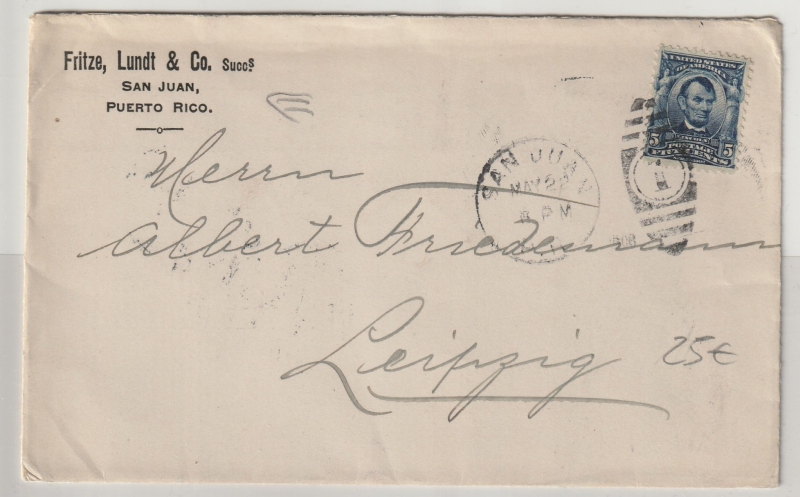 Fritze, Lundt & Co. Succs.
SAN JUAN,
PUERTO RICO.
UNITED STATES
OF AMERICA
LINCOLN
5 POSTAGE 5
FIVE CENTS
SAN JUAN
MAY 22
PM
Herrn
Albert Friedemann
Leipzig
25€